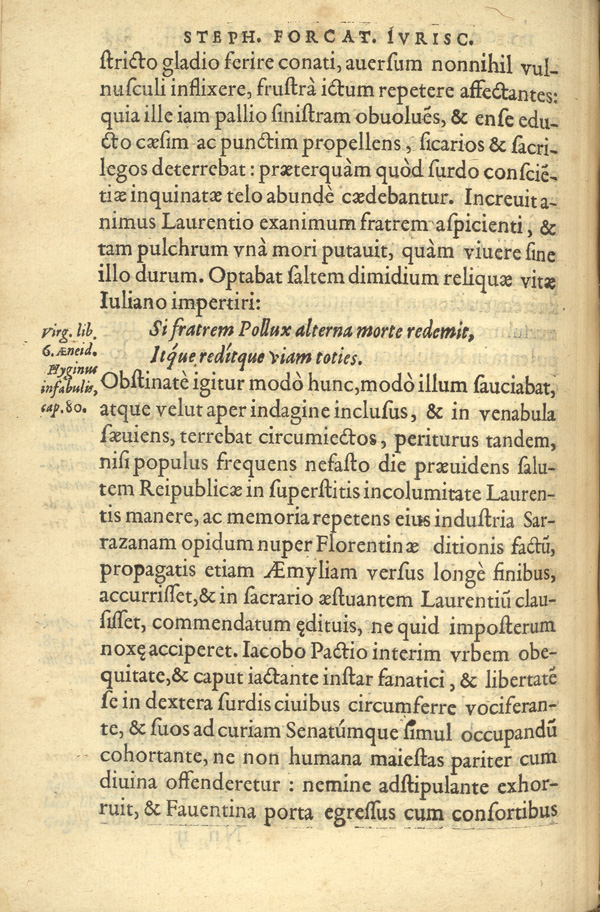 STEPH. FORCAT. IVRISC.
ſtricto gladio ferire conati, auerſum nonnihil vul-
nuſculi inflixere, fruſtrà ictum repetere affectantes:
quia ille iam pallio ſiniſtram obuoluẽs, & enſe edu-
cto cæſim ac punctim propellens, ſicarios & ſacri-
legos deterrebat: præterquàm quòd ſurdo conſciẽ-
tiæ inquinatæ telo abundè cædebantur. Increuit a-
nimus Laurentio exanimum fratrem aſpicienti, &
tam pulchrum vnà mori putauit, quàm viuere ſine
illo durum. Optabat ſaltem dimidium reliquæ vitæ
Iuliano impertiri:
Si fratrem Pollux alterna morte redemit,
Itq́ue redítque viam toties.
Virg. lib.
6. Æneid.
Hyginus
in fabulis,
cap. 80.
Obſtinatè igitur modò hunc, modò illum ſauciabat,
atque velut aper indagine incluſus, & in venabula
ſæuiens, terrebat circumiectos, periturus tandem,
niſi populus frequens nefaſto die præuidens ſalu-
tem Reipublicæ in ſuperſtitis incolumitate Lauren-
tis manere, ac memoria repetens eius induſtria Sar-
razanam opidum nuper Florentinæ ditionis factũ,
propagatis etiam Æmyliam verſus longè finibus,
accurriſſet, & in ſacrario æſtuantem Laurentiũ clau-
ſiſſet, commendatum ędituis, ne quid impoſterum
noxę acciperet. Iacobo Pactio interim vrbem obe-
quitate, & caput iactante inſtar fanatici, & libertatẽ
ſe in dextera ſurdis ciuibus circumferre vociferan-
te, & ſuos ad curiam Senatúmque ſimul occupandũ
cohortante, ne non humana maieſtas pariter cum
diuina offenderetur: nemine adſtipulante exhor-
ruit, & Fauentina porta egreſſus cum conſortibus